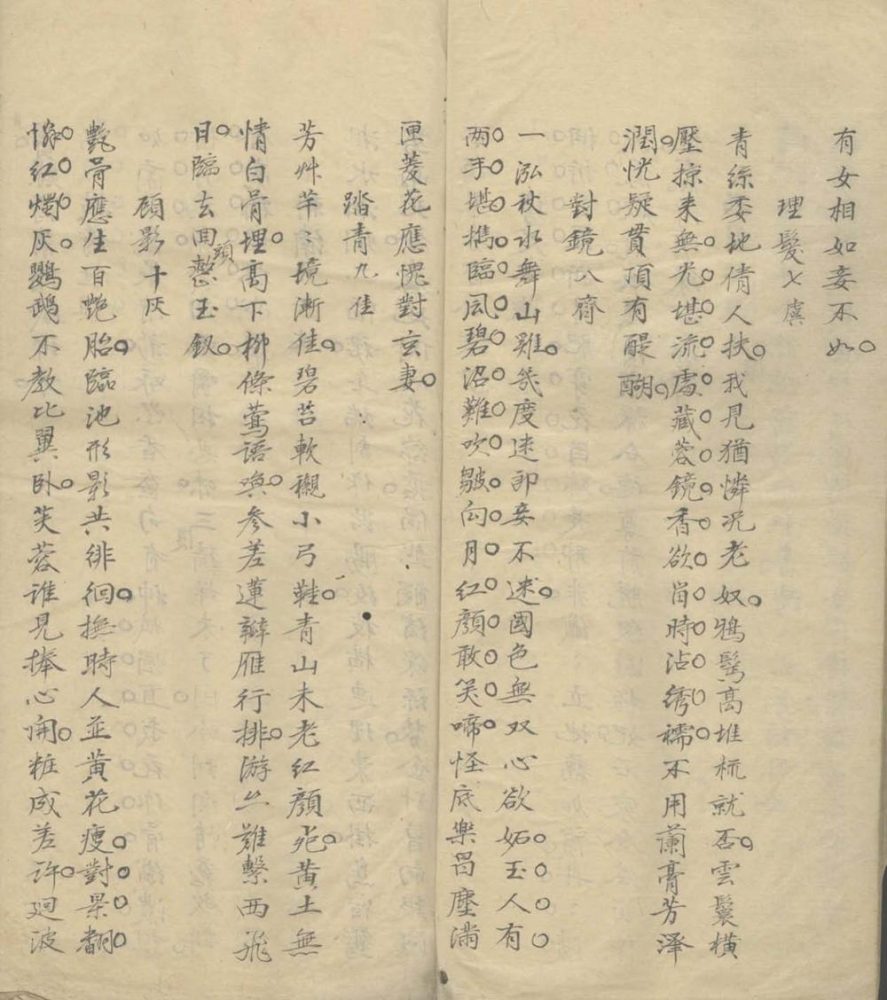 有女相如妾不如
理髮七虞
青絲委地倩人扶我見猶憐況老奴鴉髩高堆梳就否雲鬟橫
壓掠来無光堪流處藏蓉鏡香欲肖時沾绣襦不用蘭膏芳泽
潤恍疑貫頂有醍醐
對鏡八齊
一泓秋水舞山雞幾度迷郎妾不迷國色無双心欲妬玉人有
两手堪攜臨風碧沼難吹皺向月红顏敢笑啼怪底樂昌塵满
匣菱花應愧對玄妻
踏青九佳
芳艸芊ミ境漸佳碧苔軟襯小弓鞋青山未老红顏死黄土無
情白骨埋高下柳條莺語喚参差蓮瓣雁行排游丝難繫西飛
日臨去回頭整玉釵
顾影十灰
艷骨應生百艷胎臨池形影共徘徊撫時人並黄花瘦對景翻
红燭灰鸚鵡不教比翼卧芙蓉谁見捧心開粧成差许廻波